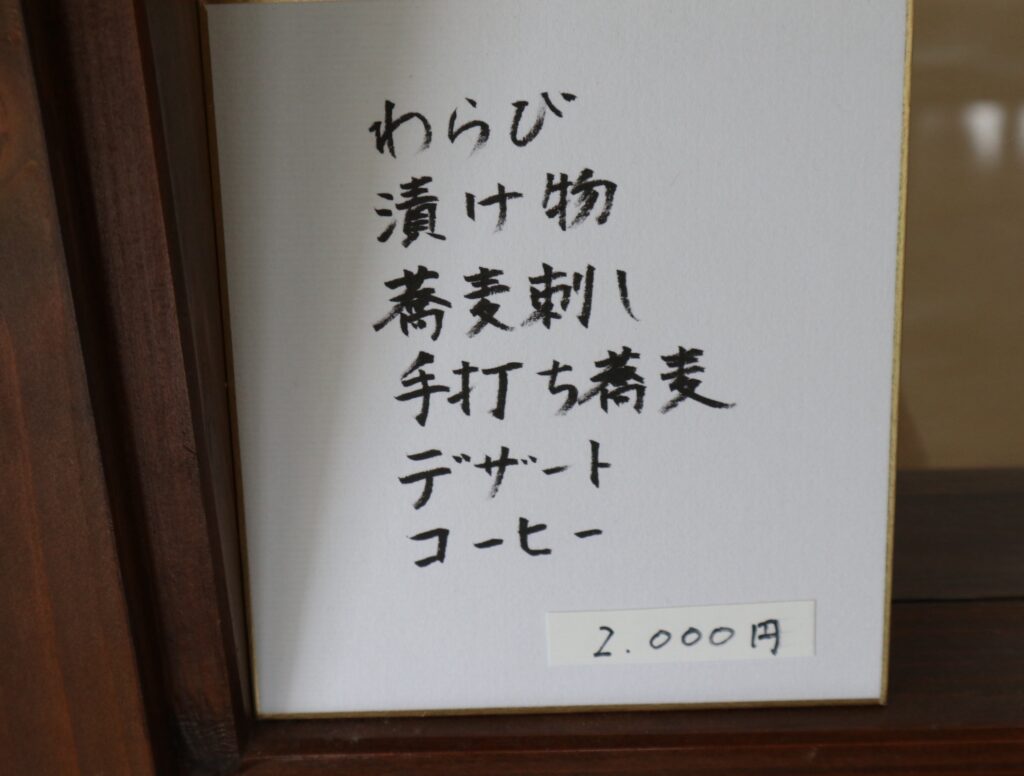 わらび
漬け物
蕎麦刺し
手打ち蕎麦
デザート
コーヒー
2.000円